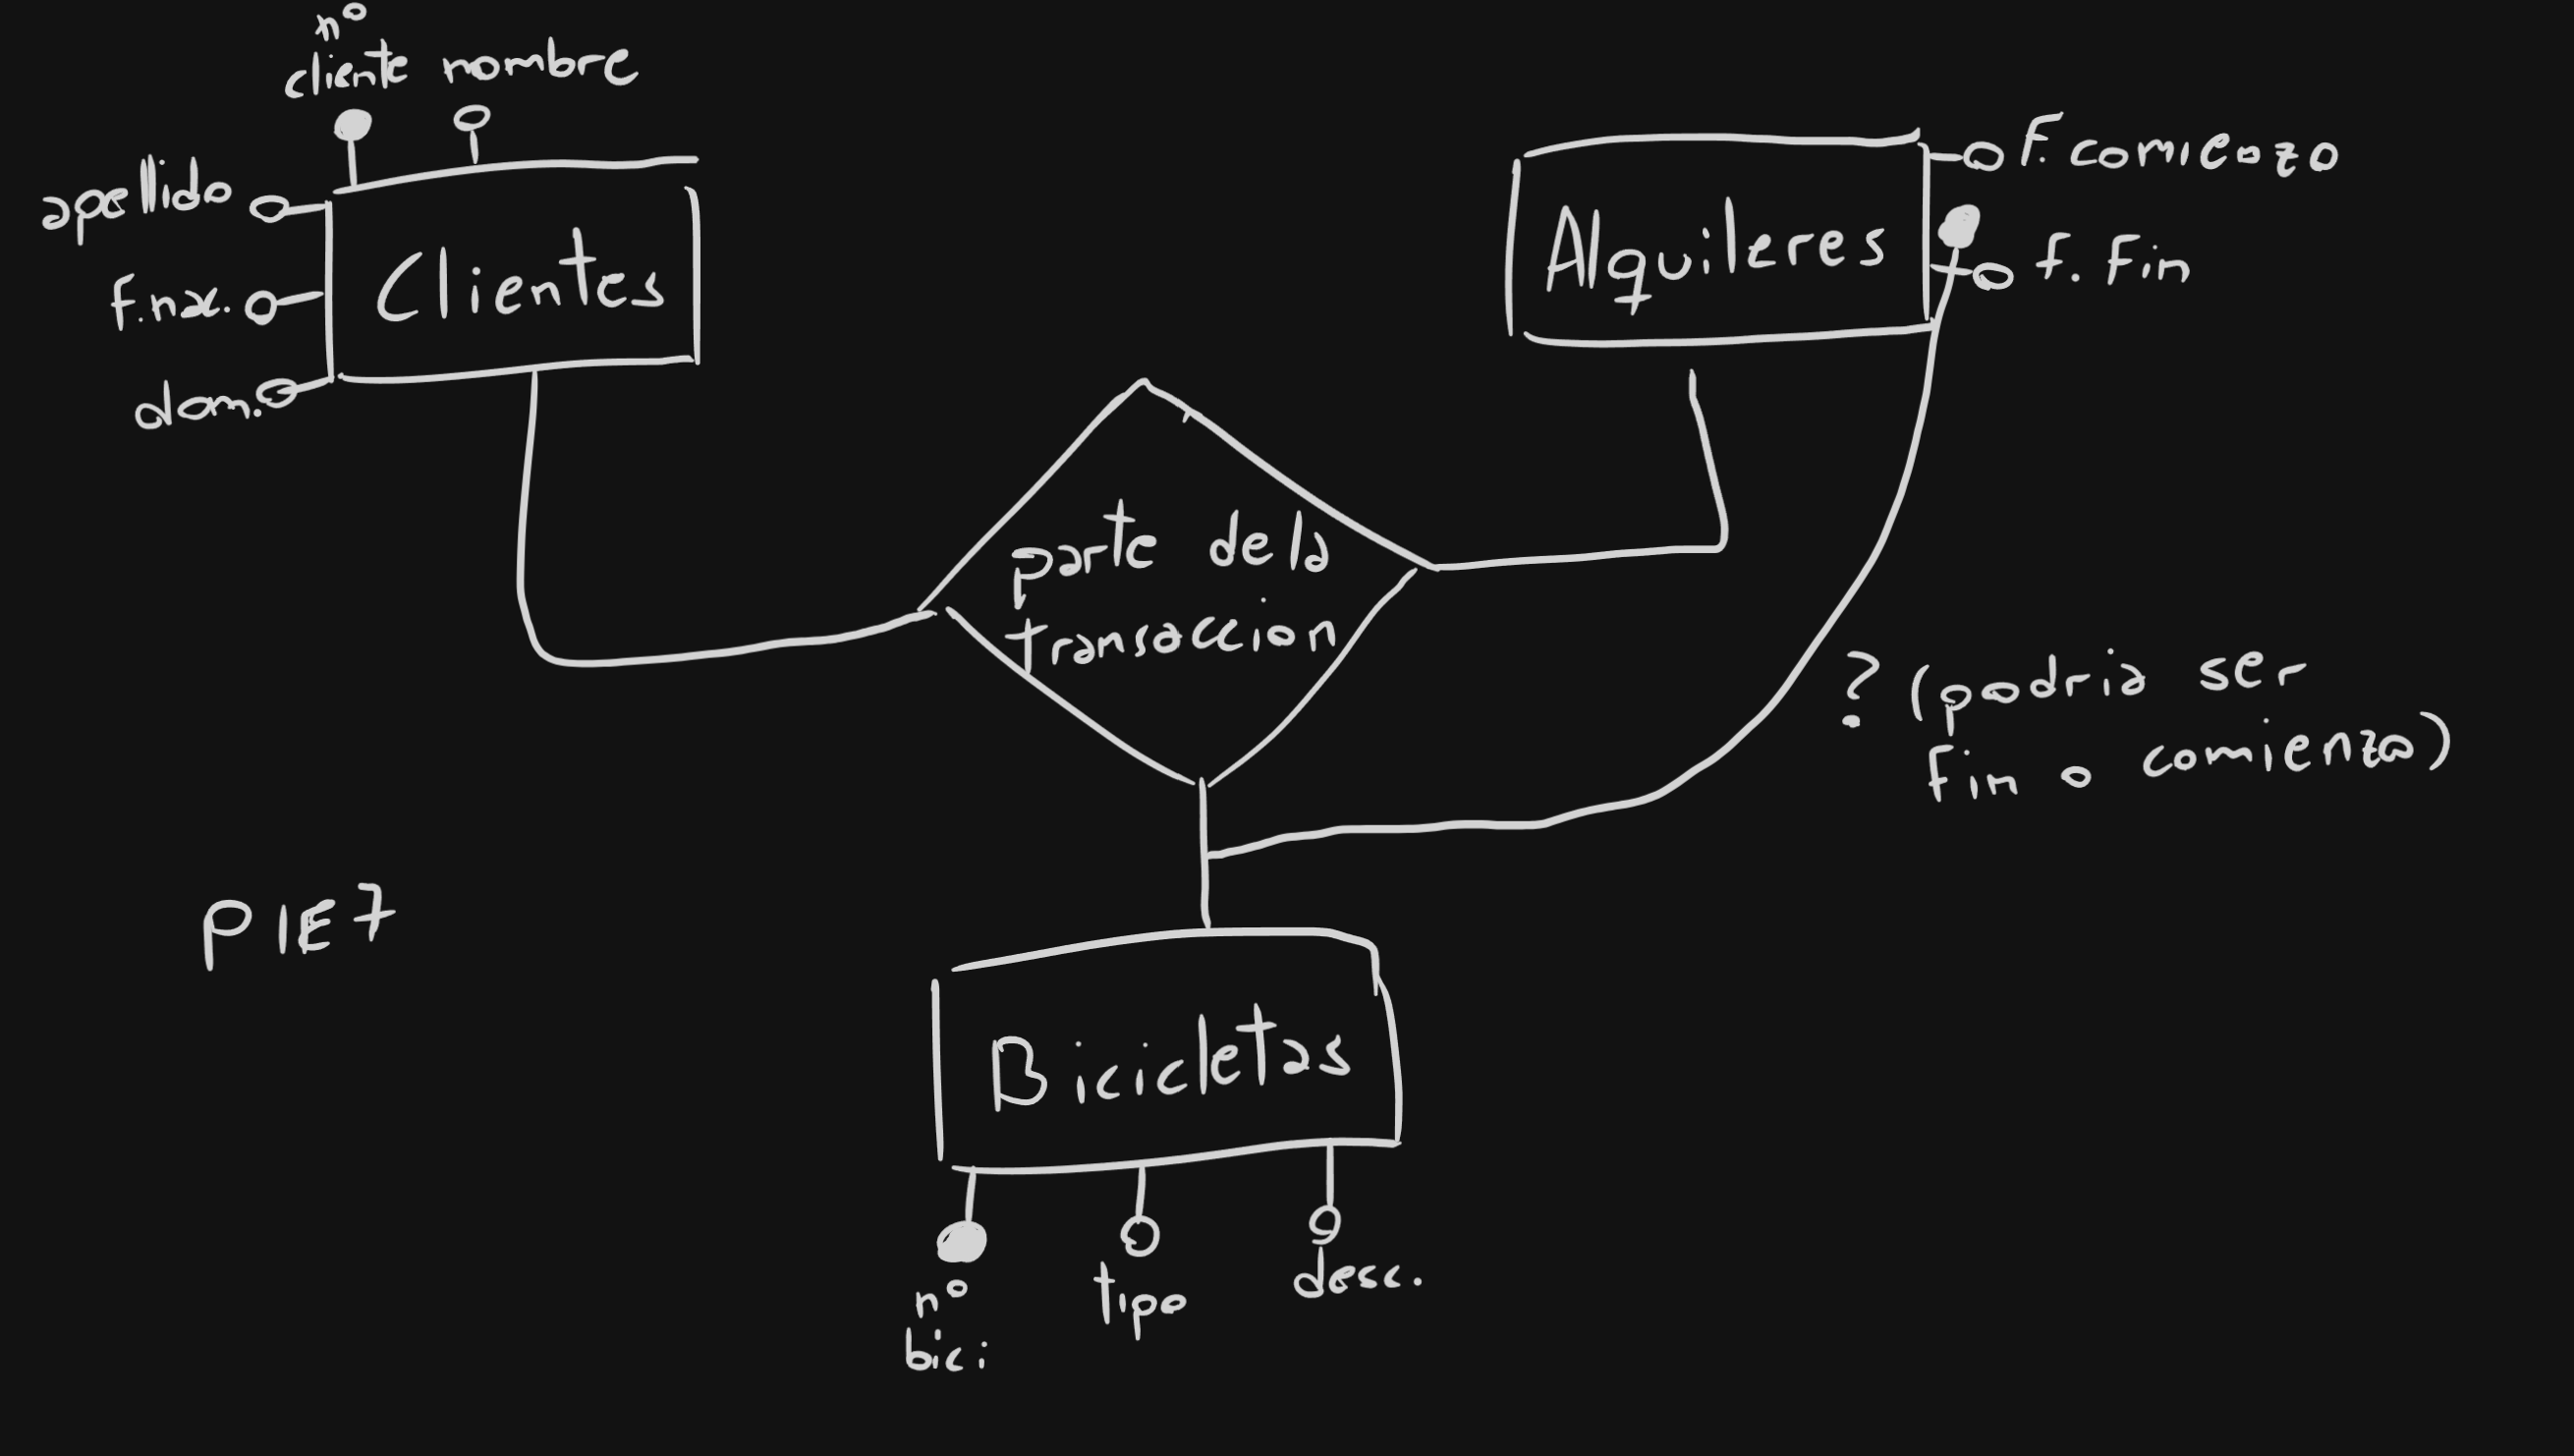 nº
cliente nombre
apellido
f.nac.
dom.
Clientes
Alquileres
F. comienzo
f. fin
parte de la
transaccion
? (podria ser
fin o comienzo)
P1E7
Bicicletas
nº
bici
tipo
desc.